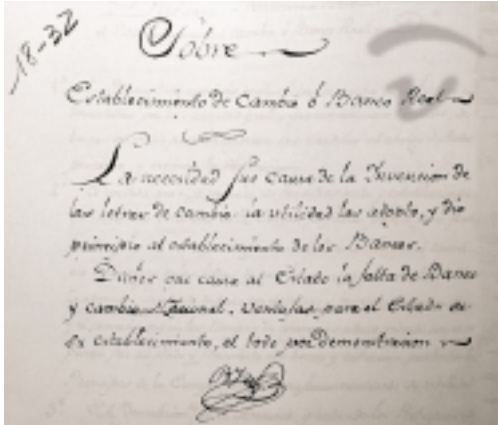 18-32
Sobre
Establecimiento de Cambio ó Banco Real
La necesidad fue causa de la Invencion de
las letras de cambio la utilidad las adopto, y dio
principio al establecimiento de los Bancos.
Daños que causa al Estado la falta de Banco
y cambio Nacional. Ventajas para el Estado de
su establecimiento, el todo por demonstracion